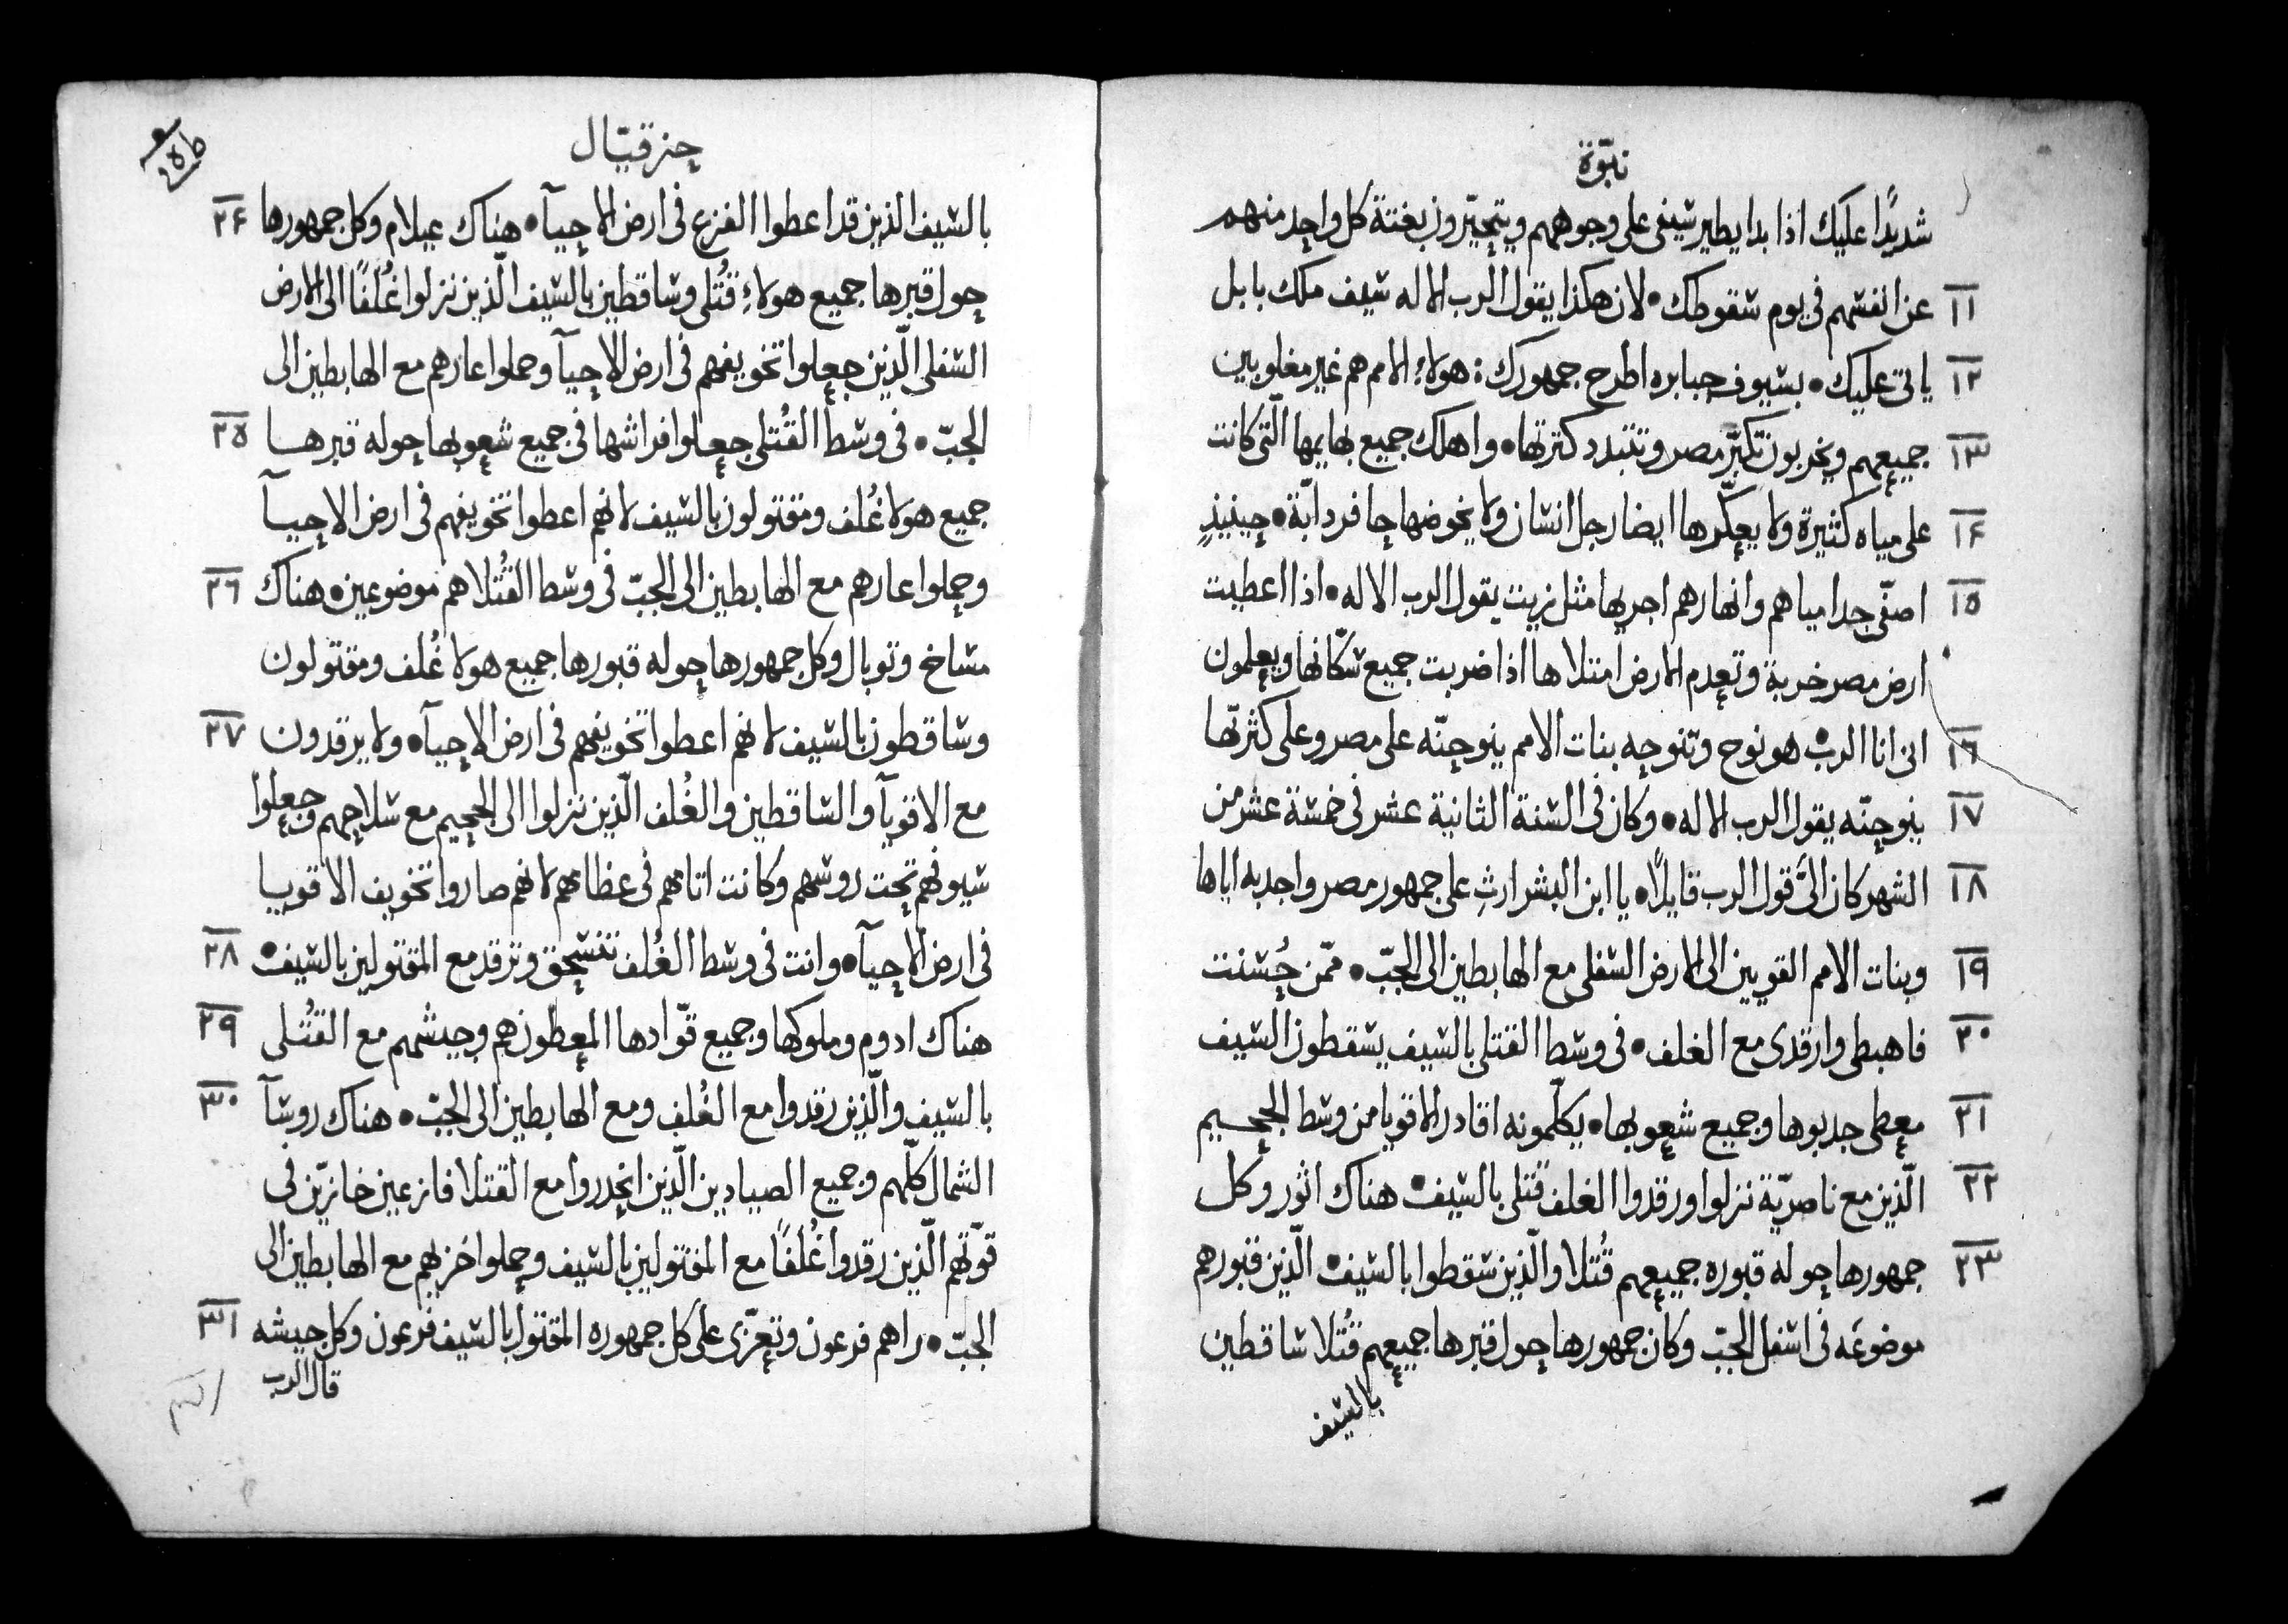 نبوّة
شديدًا عليك اذا بدا يطير سيفى على وجوههم ويتحيّرون بغتة كل واحد منهم
١١ عن انفسهم فى يوم سقوطك • لان هكذا يقول الرب الاله سيف ملك بابل
١٢ ياتى عليك • بسيوف جبابره اطرح جمهورك : هولاءِ الامم هم غير مغلوبين
١٣ جميعهم ويخربون تكبّر مصر وتتبدد كثرتها • واهلك جميع بهايمها الّتى كانت
١۴ على مياه كثيرة ولا يعكّرها ايضا رجل انسان ولا يخوضها حافر دابّة • حينيذٍ
١٥ اصفّى جدا مياهم وانهارهم اجريها مثل زيت يقول الرب الاله • اذا اعطيت
ارض مصر خربة وتعدم الارض امتلاها اذا ضربت جميع سكّانها ويعلمون
١٦ انى انا الرب • هو نوح وتنوحه بنات الامم ينوحنّه على مصر وعلى كثرتها
١٧ ينوحنّه يقول الرب الاله • وكان فى السنة الثانية عشر فى خمسة عشر من
١٨ الشهر كان الىَّ قول الرب قايلًا • يا ابن البشر ارثِ على جمهور مصر واحدبه اياها
١٩ وبنات الامم القويين الى الارض السفلى مع الهابطين الى الجبّ • ممّن حُسنت
٢٠ فاهبطى وارقدى مع الغلف • فى وسط القتلى بالسيف يسقطون السيف
٢١ معطى جدبوها وجميع شعوبها • يكلّمونه اقادر الاقويا من وسط الجحيم
٢٢ الّذين مع ناصريّة نزلوا ورقدوا الغلف قتلى بالسيف • هناك اثور وكل
٢٣ جمهورها حوله قبوره جميعهم قُتلا والّذين سقطوا بالسيف • الّذين قبورهم
موضوعَه فى اسفل الجبّ وكان جمهورها حول قبرها جميعهم قُتلا ساقطين
بالسيف
حزقيّال
بالسيف الذين قد اعطوا الفزع فى ارض الاحيآ • هناك عيلام وكل جمهورها ٢۴
حول قبرها جميع هولاءِ قُتلى وساقطين بالسيف الّذين نزلوا غُلفًا الى الارض
السفلى الّذين جعلوا تخويفهم فى ارض الاحيآ وحملوا عارهم مع الهابطين الى
الجبّ • فى وسط القُتلى جعلوا فراشها فى جميع شعوبها حوله قبرها ٢٥
جميع هولا غُلف ومقتولون بالسيف لانهم اعطوا تخويفهم فى ارض الاحيآ
وحملوا عارهم مع الهابطين الى الجبّ فى وسط القُتلا هم موضوعين • هناك ٢٦
مشاخ وتوبال وكل جمهورها حوله قبورها جميع هولا غُلف ومقتولون
وساقطون بالسيف لانهم اعطوا تخويفهم فى ارض الاحيآ • ولا يرقدون ٢٧
مع الاقويآ والساقطين والغُلف الّذين نزلوا الى الجحيم مع سلاحهم وجعلوا
سيوفهم تحت روسهم وكانت اتامهم فى عظامهم لانهم صاروا تخويف الاقويا
فى ارض الاحيآ • وانت فى وسط الغُلف تنسحق وترقد مع المقتولين بالسيف • ٢٨
هناك ادوم وملوكها وجميع قوّادها المعطون هم وجيشهم مع القُتلى ٢٩
بالسيف والّذين رقدوا مع الغُلف ومع الهابطين الى الجبّ • هناك روسآ ٣٠
الشمال كلّهم وجميع الصيادين الّذين انحدروا مع القتلا فازعين خازيّن فى
قوّتهم الّذين رقدوا غُلفًا مع المقتولين بالسيف وحملوا خزيهم مع الهابطين الى
الجبّ • راهم فرعون وتعزّى على كل جمهوره المقتول بالسيف فرعون وكل جيشه ٣١
قال الرب